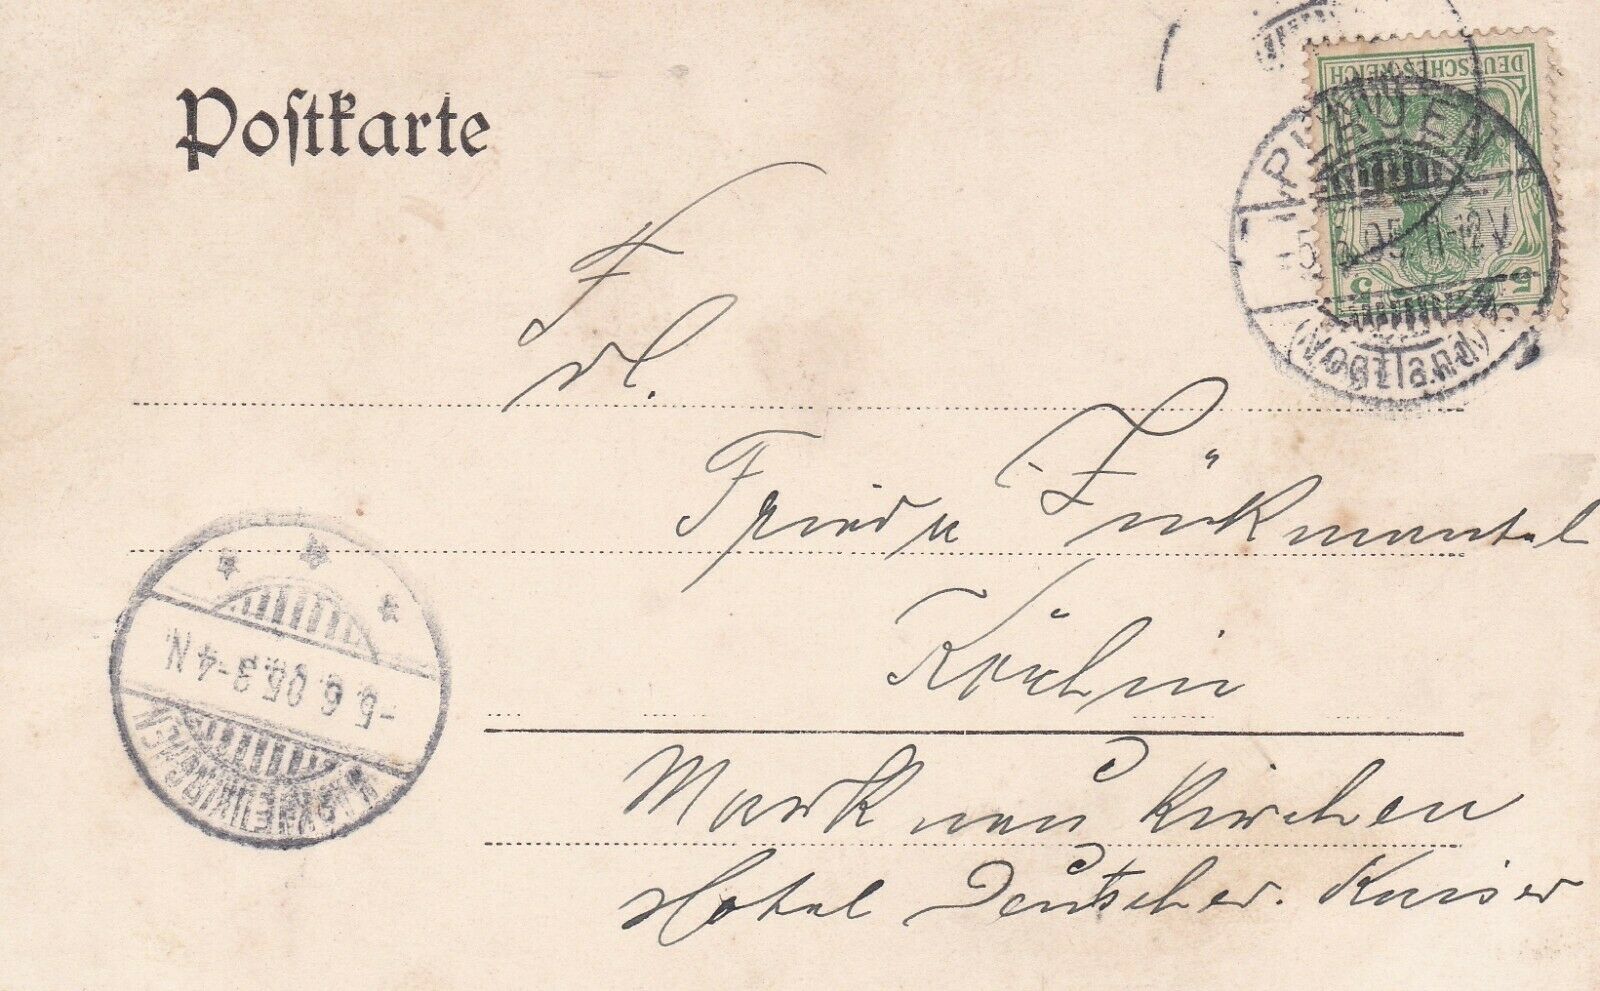 Postkarte
DEUTSCHES REICH
5 5
PLAUEN
5.6.05. 11-12 V
(VOGTLAND)
Frl.
Frieda Fückmantel
Köchin
Markneukirchen
Hotel Deutscher Kaiser
-5.6.05. 3-4 N.
MARKNEUKIRCHEN